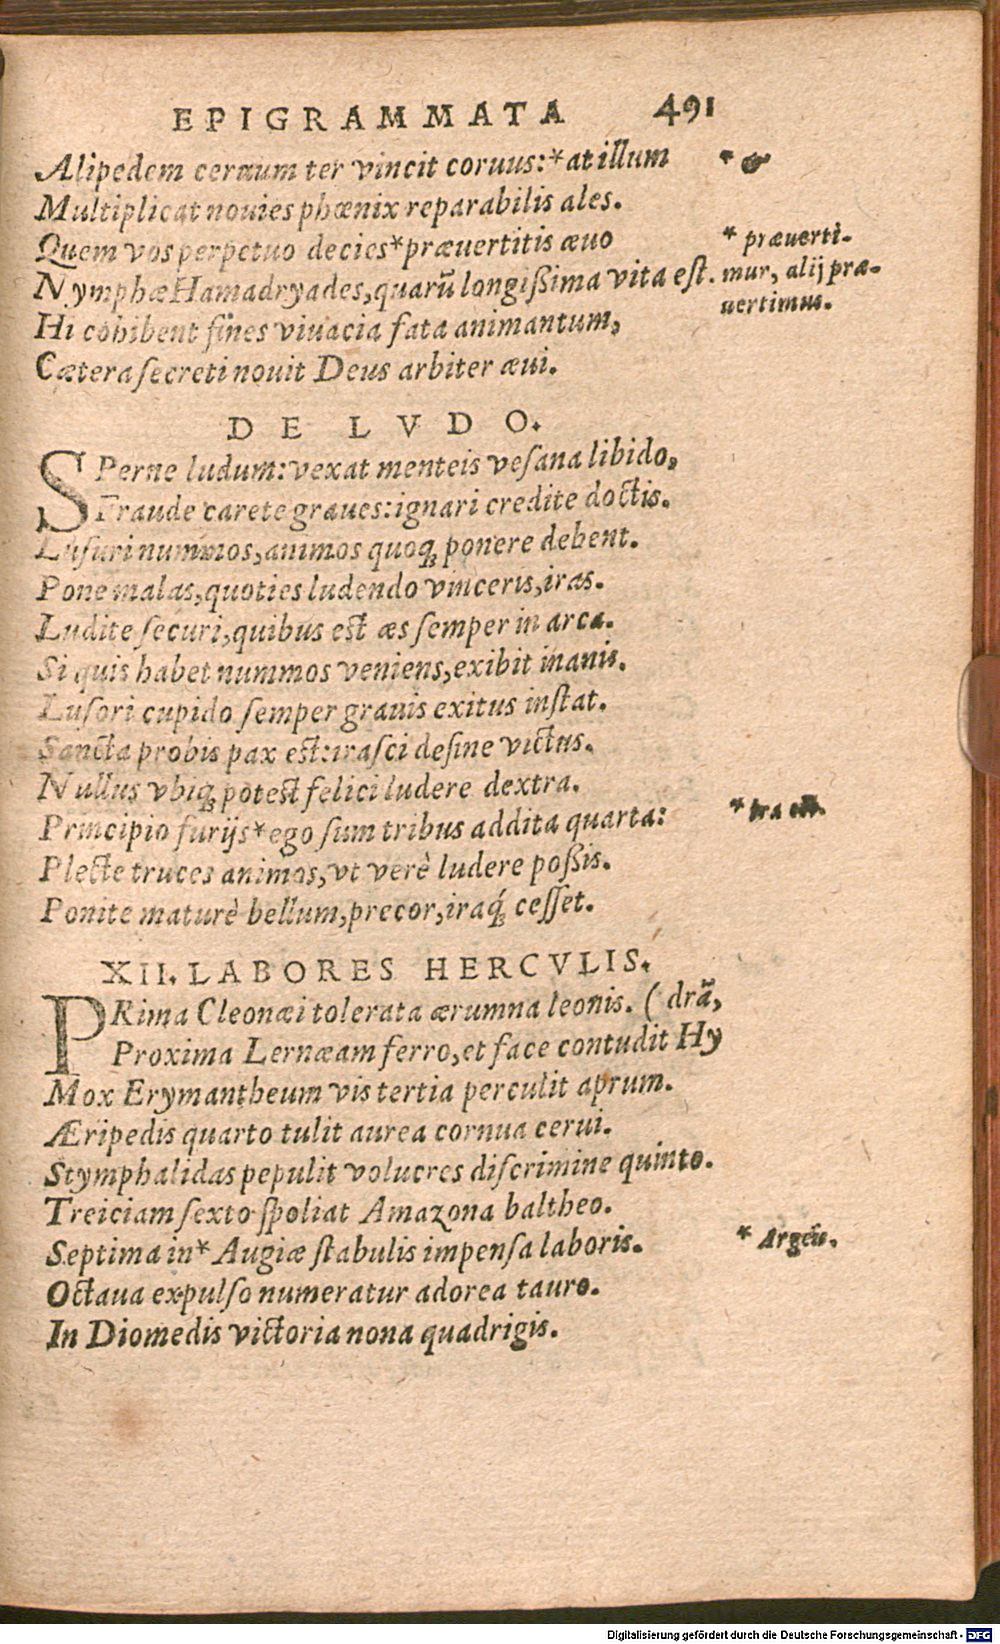 EPIGRAMMATA 491
Alipedem ceruum ter vincit coruus:*at illum
* &
Multiplicat nouies phœnix reparabilis ales.
Quem vos perpetuo decies*præuertitis æuo
* præuerti-
Nymphæ Hamadryades,quarũ longißima vita est.
mur, alij præ-
uertimus.
Hi cohibent fines viuacia fata animantum,
Cætera secreti nouit Deus arbiter æui.
DE LVDO.
SPerne ludum:vexat menteis vesana libido,
Fraude carete graues:ignari credite doctis.
Lusuri nummos,animos quoq; ponere debent.
Pone malas,quoties ludendo vinceris,iras.
Ludite securi,quibus est æs semper in arca.
Si quis habet nummos veniens,exibit inanis.
Lusori cupido semper grauis exitus instat.
Sancta probis pax est:irasci desine victus.
Nullus vbiq; potest felici ludere dextra.
Principio furijs*ego sum tribus addita quarta:
* ira est.
Plecte truces animos,vt verè ludere poßis.
Ponite maturè bellum,precor,iraq́; cesset.
XII. LABORES HERCVLIS.
PRima Cleonæi tolerata ærumna leonis. ( drã,
Proxima Lernæam ferro,et face contudit Hy
Mox Erymantheum vis tertia perculit aprum.
Æripedis quarto tulit aurea cornua cerui.
Stymphalidas pepulit volucres discrimine quinto.
Treiciam sexto spoliat Amazona baltheo.
Septima in* Augiæ stabulis impensa laboris.
* Argeũ.
Octaua expulso numeratur adorea tauro.
In Diomedis victoria nona quadrigis.
Digitalisierung gefördert durch die Deutsche Forschungsgemeinschaft - DFG